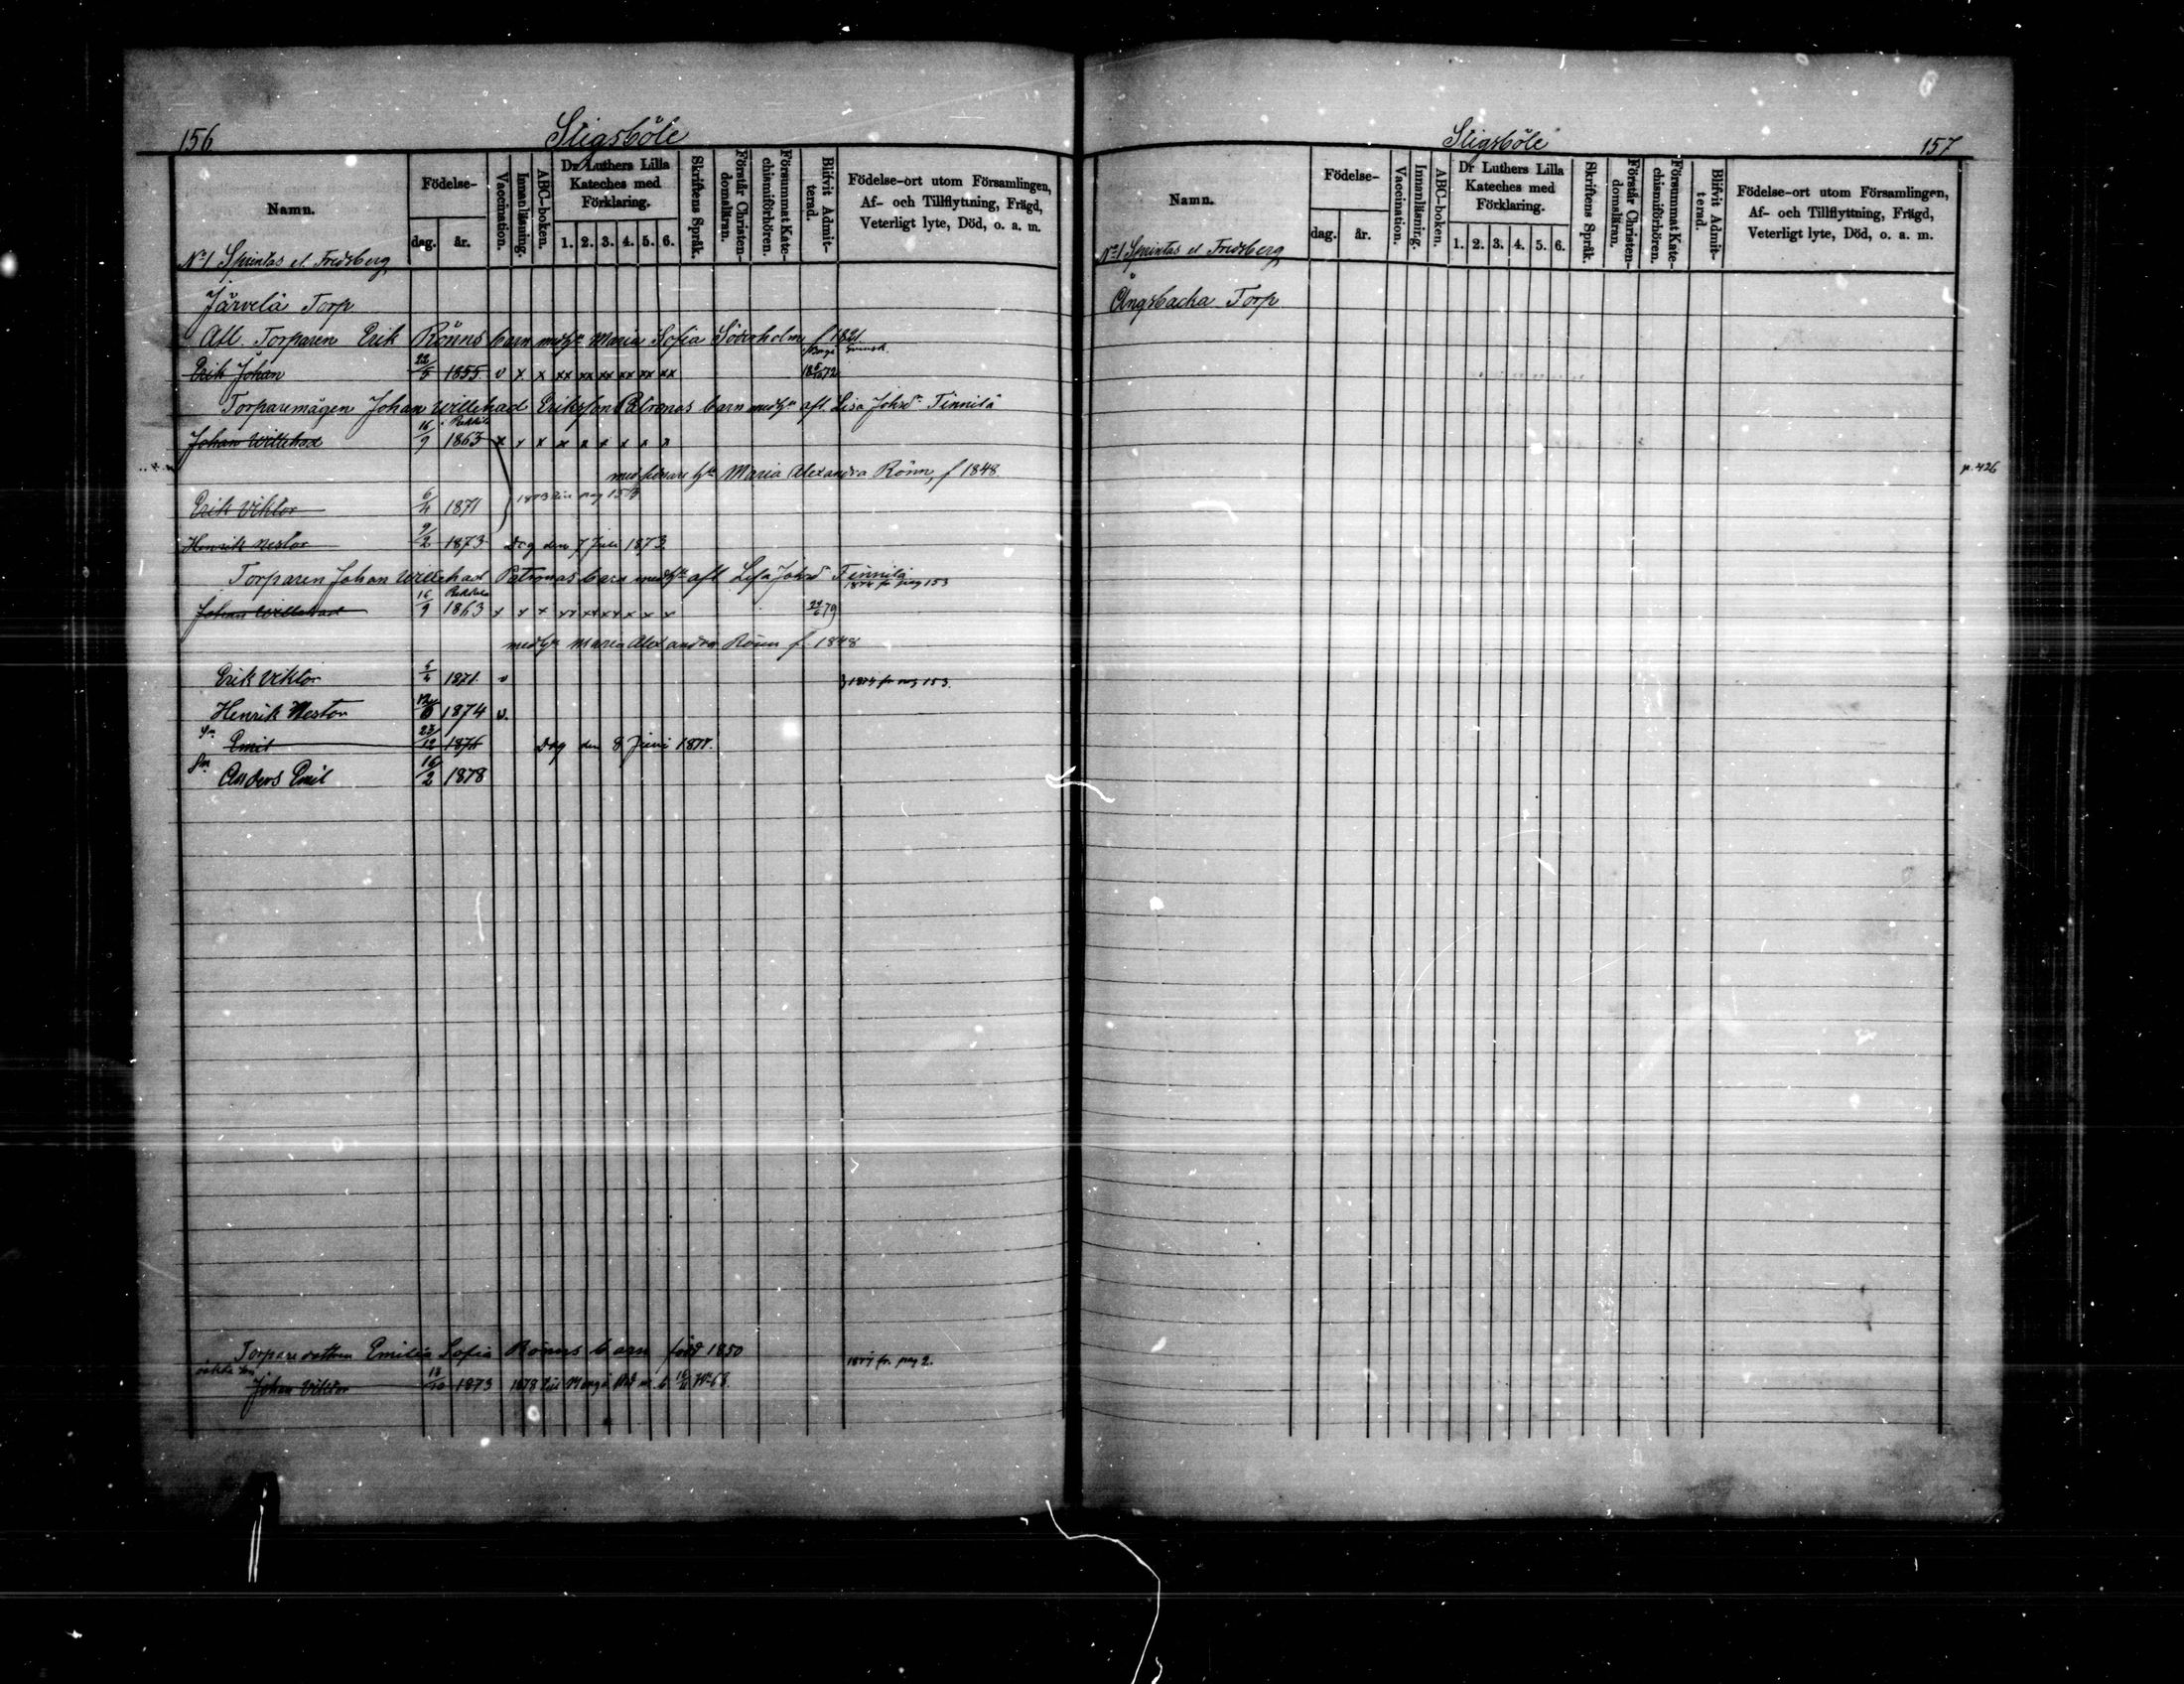 156
Stigsböle
Namn.
Födelse-
dag.
år.
Vaccination.
Innanläsning.
ABC-boken.
Dr Luthers Lilla
Kateches med
Förklaring.
1. 2. 3. 4. 5. 6.
Skriftens Språk.
Förstår Christen-
domsläran.
Försummat Kate-
chismiförhören.
Blifvit Admit-
terad.
Födelse-ort utom Församlingen,
Af- och Tillflyttning, Frägd,
Veterligt lyte, Död, o. a. m.
No 1 Sprintas el. Fredsberg
Järvelä Torp
Afl. Torparen Erik Rönns barn med hu Maria Sofia Söderholm f 1821
Erik Johan 22/5 1855 v x x xx xx xx xx xx xx
Torparemågen Johan Willehad Eriksson Patronas barn med hu afl. Lisa Johsdr Tinnilä
Johan Willehad 16/9 1863 x x x x x x x x x
med senare hu Maria Alexandra Rönn, f 1848.
Erik Viktor 6/4 1871
Henrik Nestor 9/2 1873 Dog den 7 Juli 1873.
Torparen Johan Willehad Patronas barn med hu afl Lisa Johsdr Tinnilä
1874 fr pag 153
Johan Willehad 16/9 1863 x x x xx xx xx x x x
med hu Maria Alexandra Rönn f. 1848
Erik Viktor 6/4 1871. v 1874 fr pag 153.
Henrik Nestor 1874 v.
Emil 23/12 1876 Dog den 8 Juni 1877.
Anders Emil 16/2 1878
Torpare dottern Emilia Sofia Rönns barn född 1850
1877 fr. pag 2.
Johan Viktor 13/10 1873 1878
Stigsböle
157
Namn.
Födelse-
dag.
år.
Vaccination.
Innanläsning.
ABC-boken.
Dr Luthers Lilla
Kateches med
Förklaring.
1. 2. 3. 4. 5. 6.
Skriftens Språk.
Förstår Christen-
domsläran.
Försummat Kate-
chismiförhören.
Blifvit Admit-
terad.
Födelse-ort utom Församlingen,
Af- och Tillflyttning, Frägd,
Veterligt lyte, Död, o. a. m.
No 1 Sprintas el Fredsberg
Ångsbacka Torp
p. 426